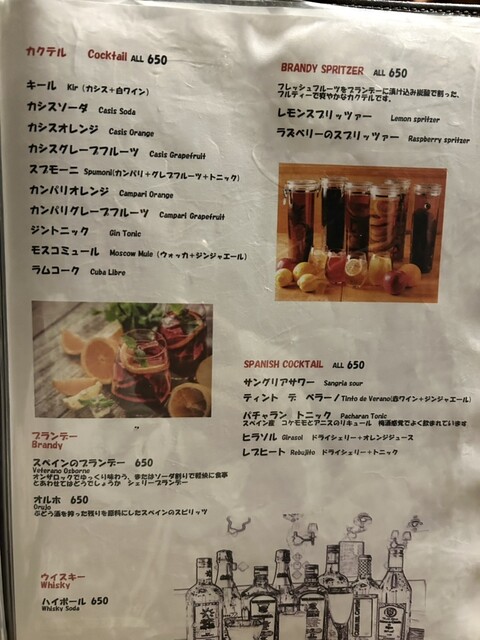 カクテル Cocktail ALL 650
キール Kir (カシス+白ワイン)
カシスソーダ Casis Soda
カシスオレンジ Casis Orange
カシスグレープフルーツ Casis Grapefruit
スプモーニ Spumoni(カンパリ+グレフフルーツ+トニック)
カンパリオレンジ Campari Orange
カンパリグレープフルーツ Campari Grapefruit
ジントニック Gin Tonic
モスコミュール Moscow Mule (ウォッカ+ジンジャエール)
ラムコーク Cuba Libre
ブランデー
Brandy
スペインのブランデー 650
Veterano Osborne
オンザロックでゆっくり味わう、またはソーダ割りで軽快に食事
とあわせてはどうでしょうか シェリーブランデー
オルホ 650
Orujo
ぶどう酒を搾った残りを原料にしたスペインのスピリッツ
ウイスキー
Whisky
ハイボール 650
Whisky Soda
BRANDY SPRITZER ALL 650
フレッシュフルーツをブランデーに漬け込み炭酸で割った、
フルティーで爽やかなカクテルです。
レモンスプリッツァー Lemon spritzer
ラズベリーのスプリッツァー Raspberry spritzer
SPANISH COCKTAIL ALL 650
サングリアサワー Sangria sour
ティント デ ベラーノ Tinto de Verano(白ワイン+ジンジャエール)
パチャラン トニック Pacharan Tonic
スペイン産 コケモモとアニスのリキュール 梅酒感覚でよく飲まれています
ヒラソル Girasol ドライシェリー+オレンジジュース
レブヒート Rebujito ドライシェリー+トニック